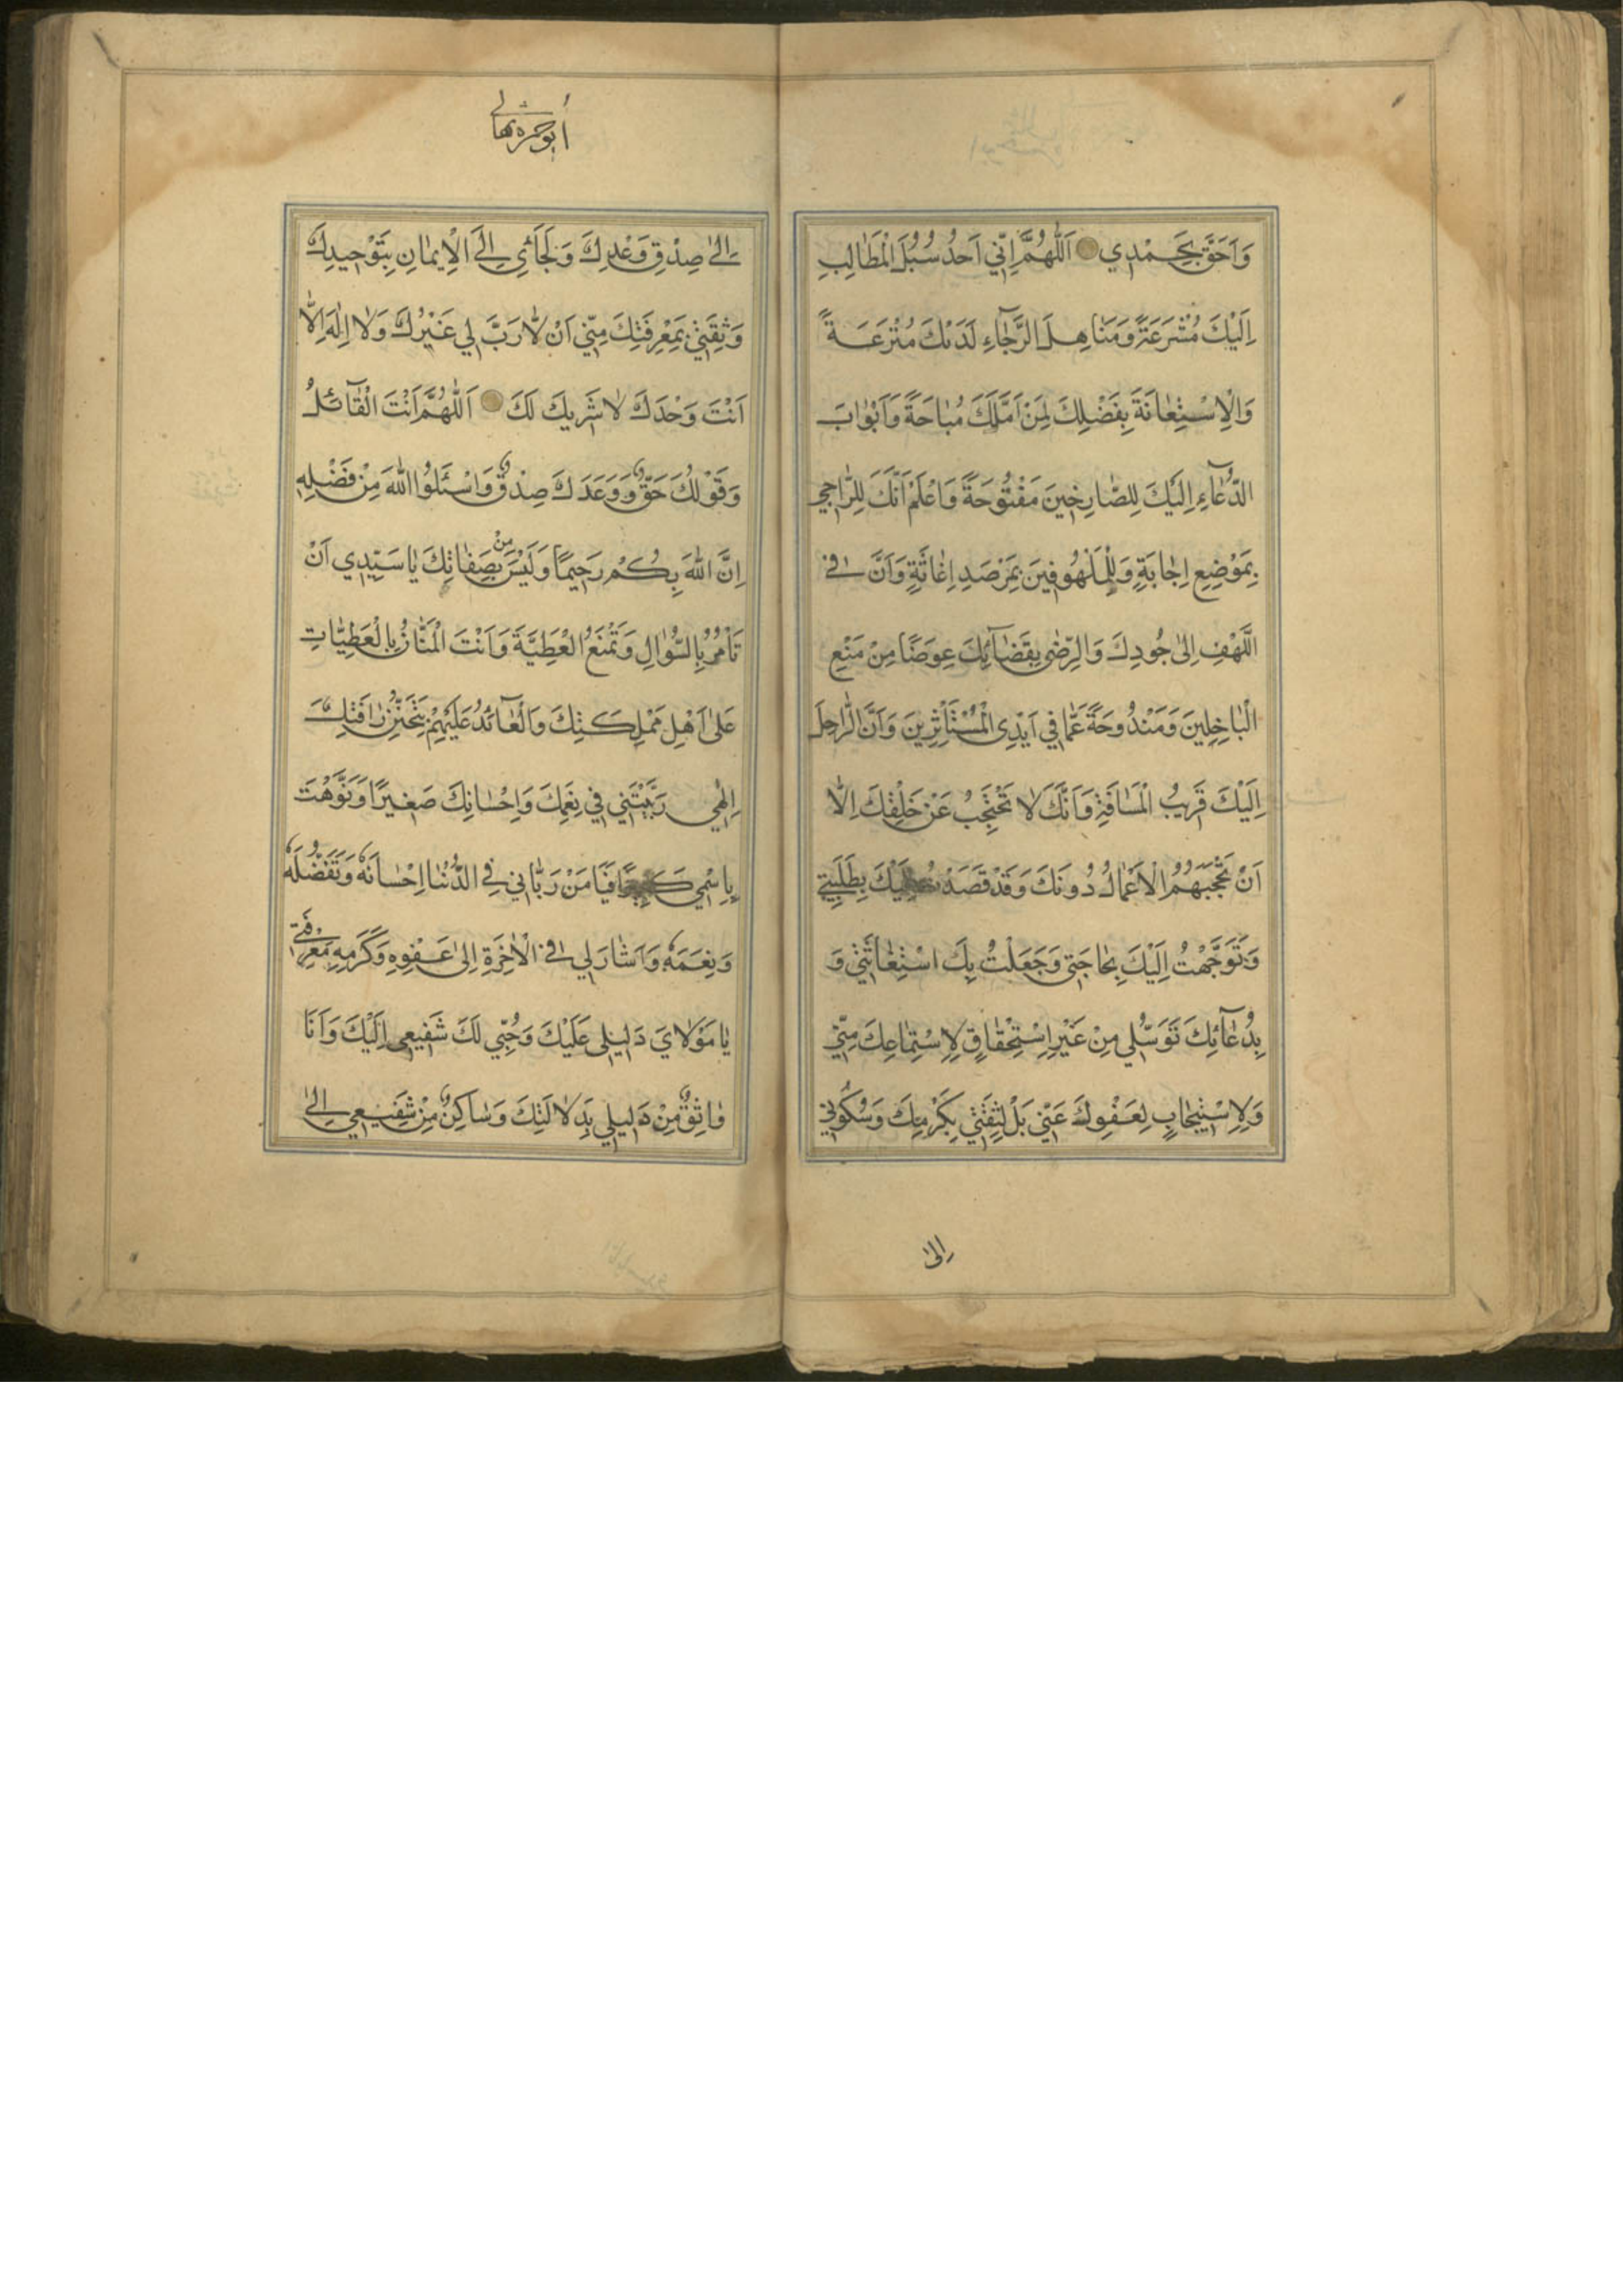 وَاَحَقَّ بِحَمْدِي اَللّٰهُمَّ اِنّي اَجِدُ سُبُلَ الْمَطٰالِبِ
اِلَيْكَ مُشْرَعَةً وَمَنٰاهِلَ الرَّجٰآءِ لَدَيْكَ مُتْرَعَةً
وَالْاِسْتِعٰانَةَ بِفَضْلِكَ لِمَنْ اَمَّلَكَ مُبٰاحَةً وَاَبْوٰابَ
الدُّعٰآءِ اِلَيْكَ لِلصّٰارِخينَ مَفْتُوحَةً وَاَعْلَمُ اَنَّكَ لِلرّٰاجي
بِمَوْضِعِ اِجٰابَةٍ وَلِلْمَلْهُوفينَ بِمَرْصَدِ اِغٰاثَةٍ وَاَنَّ في
الَّلهْفِ اِلىٰ جُودِكَ وَالرِّضٰى بِقَضٰآئِكَ عِوَضًا مِنْ مَنْعِ
الْبٰاخِلينَ وَمَنْدُوحَةً عَمّٰا في اَيْدِى الْمُسْتَأْثِرينَ وَاَنَّ الرّٰاحِلَ
اِلَيْكَ قَريبُ الْمَسٰافَةِ وَاَنَّكَ لٰا تَحْتَجِبُ عَنْ خَلْقِكَ اِلّٰا
اَنْ تَحْجُبَهُمُ الْاَعْمٰالُ دُونَكَ وَقَدْ قَصَدْتُ اِلَيْكَ بِطَلِبَتي
وَتَوَجَّهْتُ اِلَيْكَ بِحٰاجَتي وَجَعَلْتُ بِكَ اسْتِغٰاثَتي وَ
بِدُعٰآئِكَ تَوَسُّلي مِنْ غَيْرِ اسْتِحْقٰاقٍ لِاِسْتِمٰاعِكَ مِنّي
وَلَا اسْتيجٰابٍ لِعَفْوِكَ عَنّي بَلْ لِثِقَتي بِكَرَمِكَ وَسُكُوني
اِلىٰ
أبوحمزه ثمالى
اِلىٰ صِدْقِ وَعْدِكَ وَلَجَأئي اِلَى الْاِيمٰانِ بِتَوْحيدِكَ
وَثِقَتي بِمَعْرِفَتِكَ مِنّي اَنْ لٰا رَبَّ لي غَيْرُكَ وَلٰا اِلٰهَ اِلّٰا
اَنْتَ وَحْدَكَ لٰا شَريكَ لَكَ اَللّٰهُمَّ اَنْتَ الْقٰآئِلُ
وَقَوْلُكَ حَقٌّ وَوَعْدُكَ صِدْقٌ وَاسْئَلُوا اللّٰهَ مِنْ فَضْلِهِ
اِنَّ اللّٰهَ بِكُمْ رَحيمًا وَلَيْسَ مِنْ صِفٰاتِكَ يٰا سَيِّدي اَنْ
تَأْمُرَ بِالسُّؤٰالِ وَتَمْنَعَ الْعَطِيَّةَ وَاَنْتَ الْمَنّٰانُ بِالْعَطِيّٰاتِ
عَلىٰ اَهْلِ مَمْلِكَتِكَ وَالْعٰآئِدُ عَلَيْهِمْ بِتَحَنُّنِ رَأفَتِكَ
اِلٰهي رَبَّيْتَني في نِعَمِكَ وَاِحْسٰانِكَ صَغيرًا وَنَوَّهْتَ
بِاسْمي كَبيرًا فَيٰا مَنْ رَبّٰاني فِي الدُّنْيٰا اِحْسٰانَهُ وَتَفَضُّلَهُ
وَنِعَمَهُ وَاَشٰارَ لي فِي الْاٰخِرَةِ اِلىٰ عَفْوِهِ وَكَرَمِهِ مَعْرِفَتي
يٰا مَوْلٰايَ دَليلي عَلَيْكَ وَحُبّي لَكَ شَفيعي اِلَيْكَ وَاَنَا
وٰاثِقٌ مِنْ دَليلي بِدَلٰالَتِكَ وَسٰاكِنٌ مِنْ شَفيعي اِلىٰ